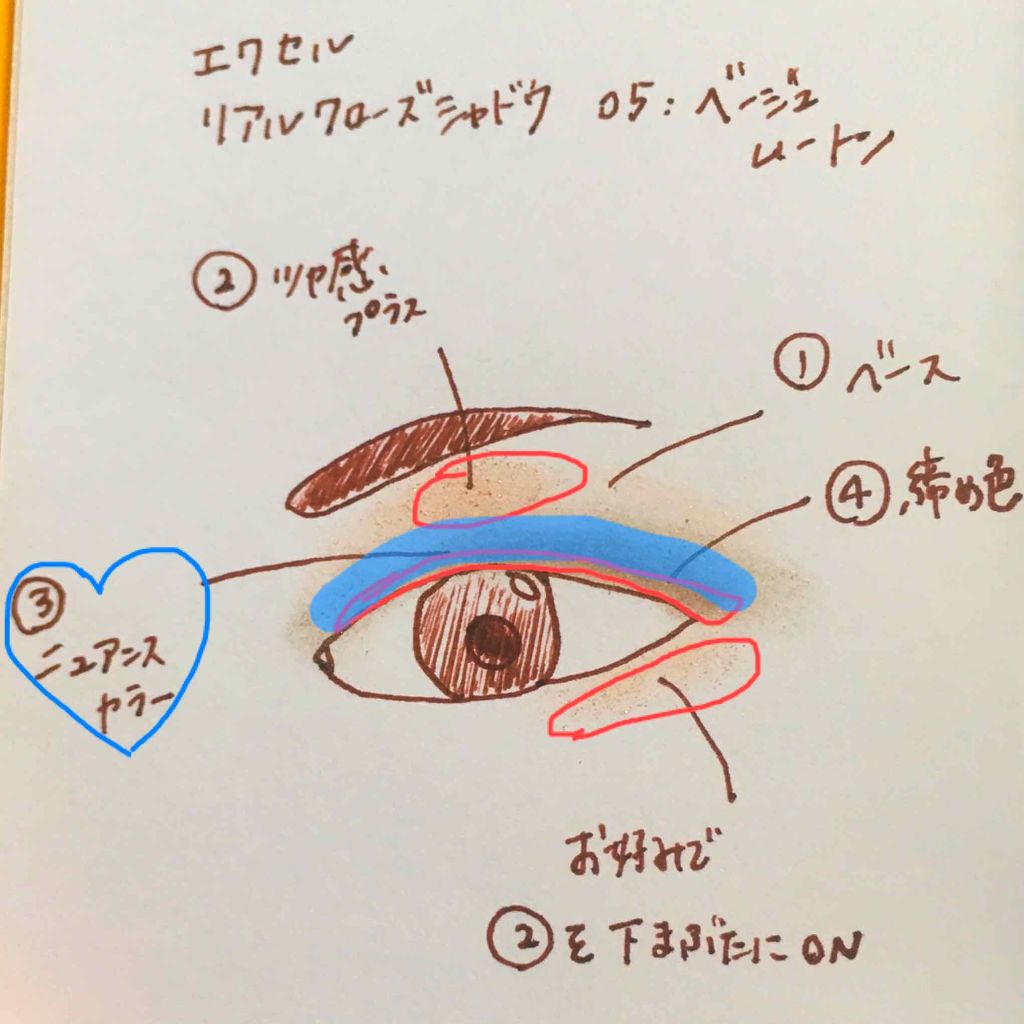 エクセル
リアルクローズシャドウ 05:ベージュ
ムートン
② ツヤ感
プラス
① ベース
④ 締め色
③
ニュアンス
カラー
お好みで
②を下まぶたにON